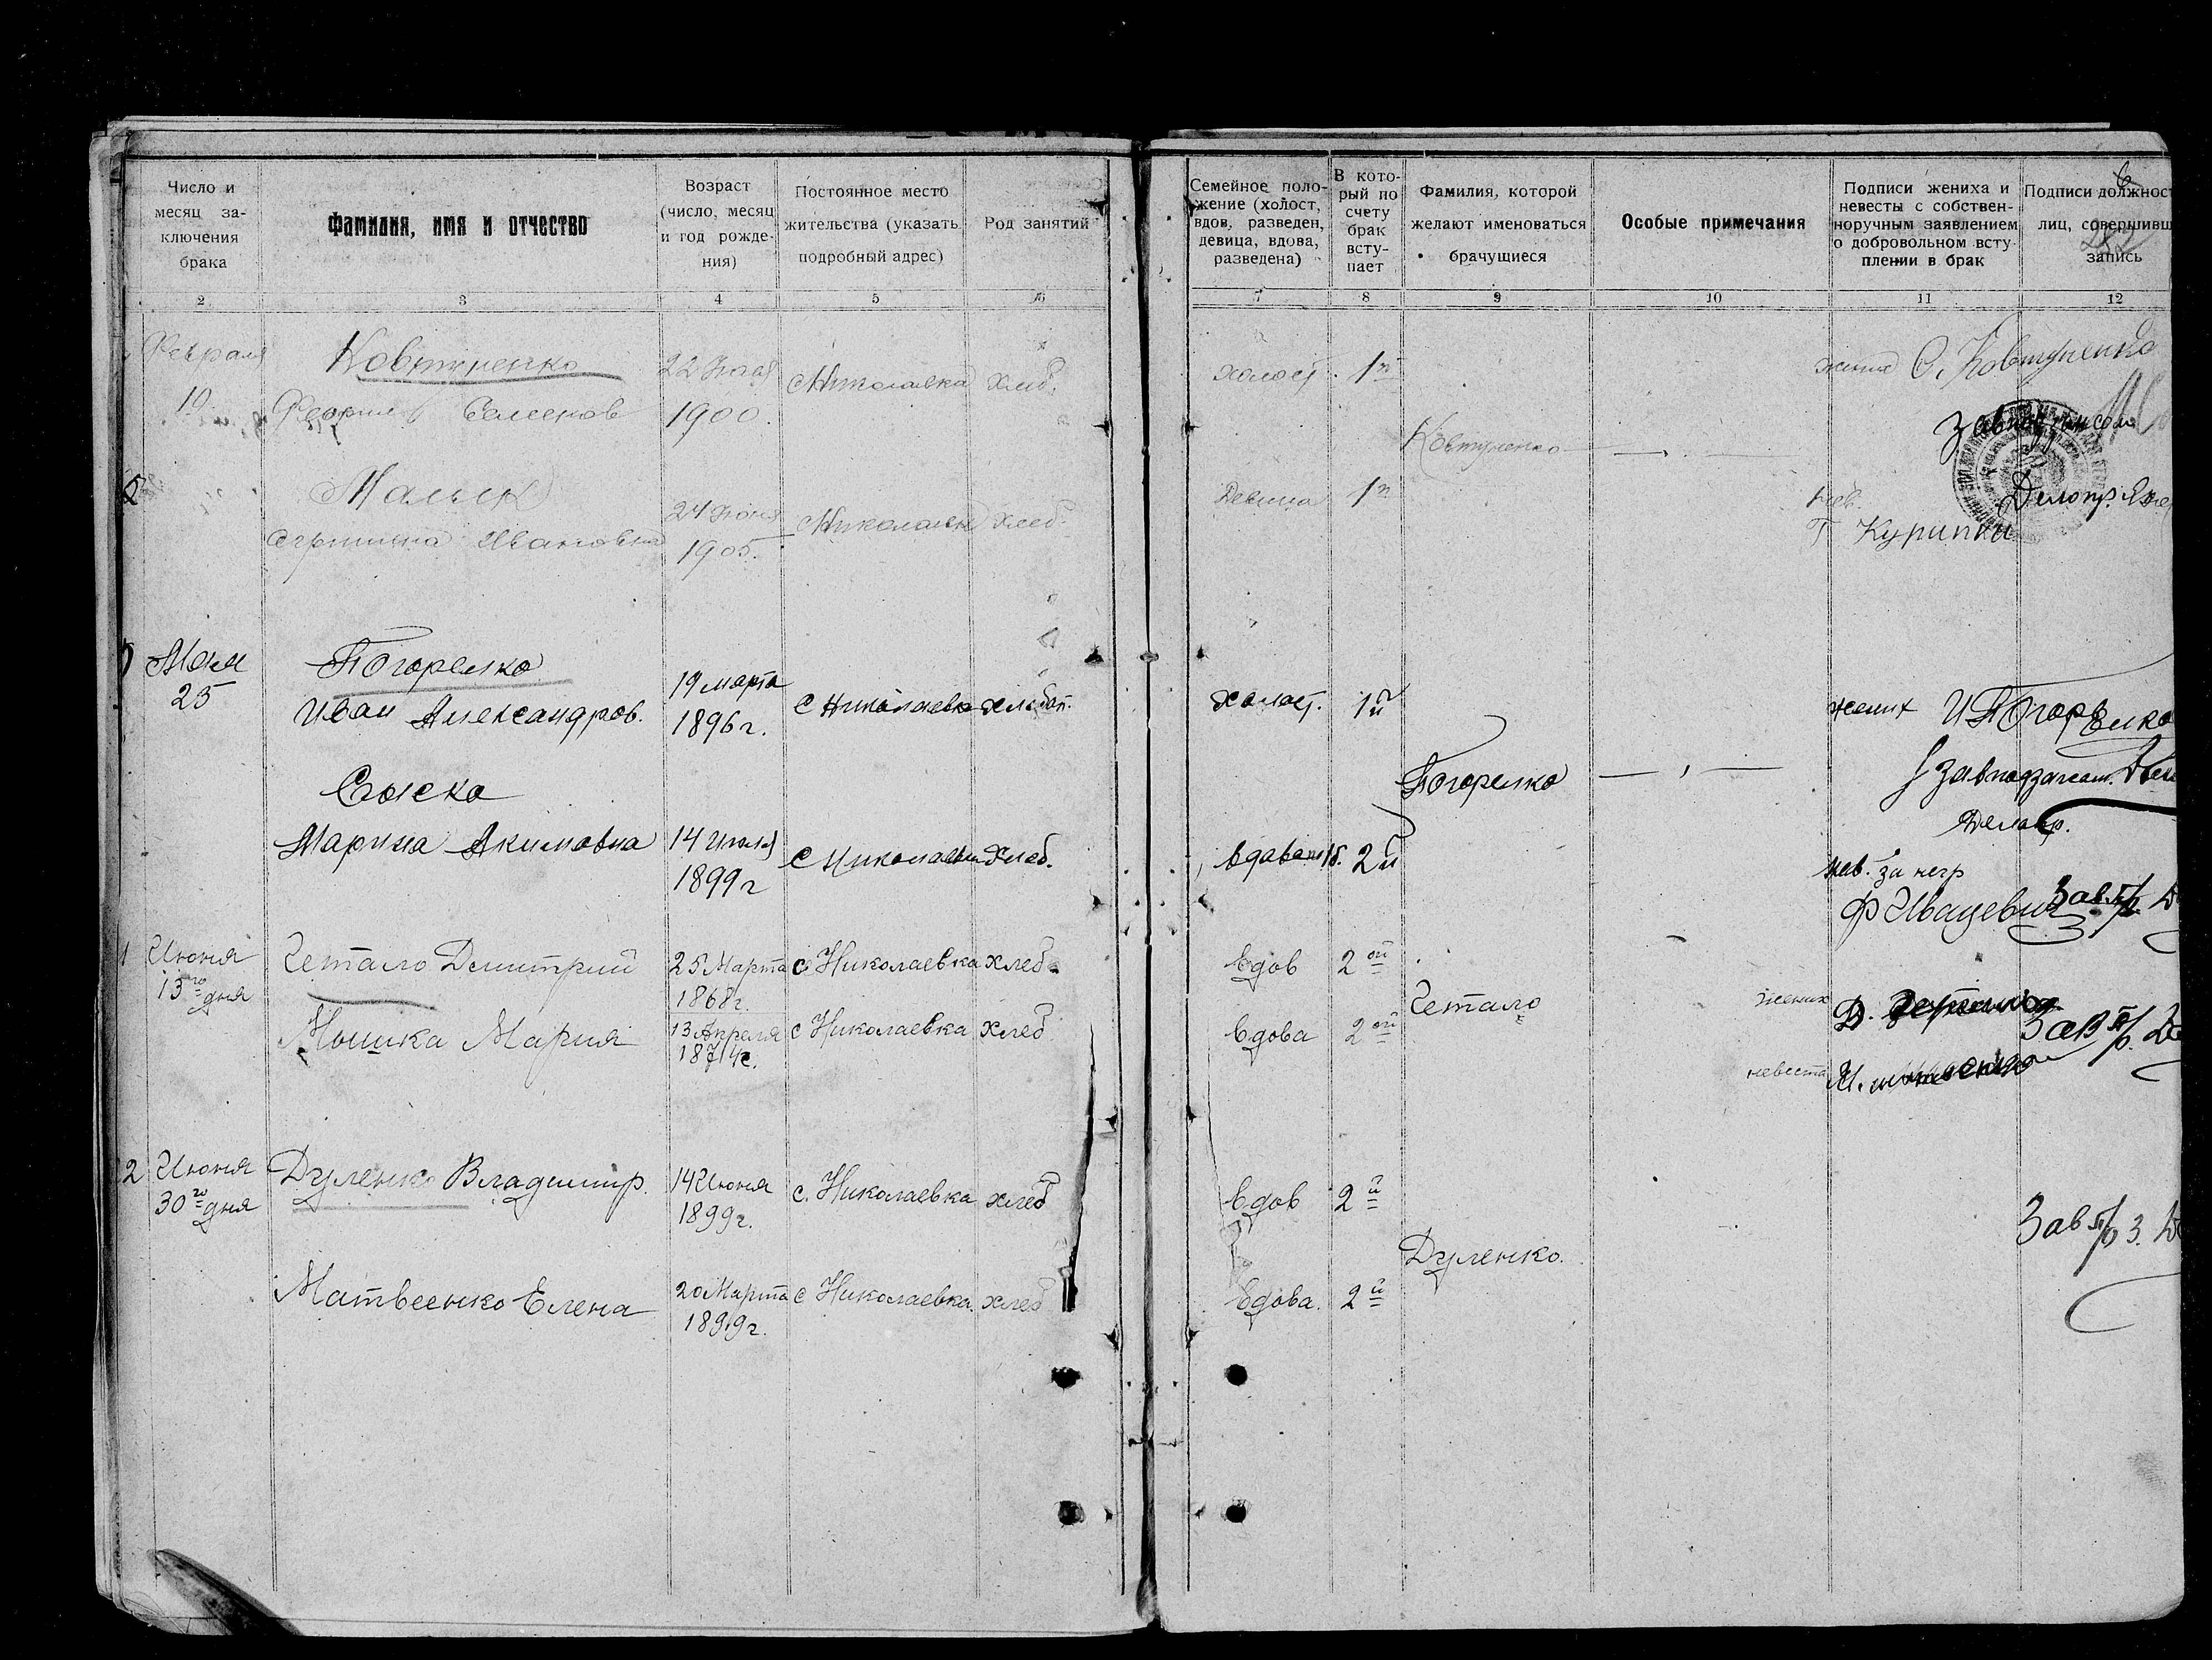 Число и
месяц за-
ключения
брака
Фамилия, имя и отчество
Возраст
(число, месяц
и год рожде-
ния)
Постоянное место
жительства (указать
подробный адрес)
Род занятий
Семейное поло-
жение (холост,
вдов, разведен,
девица, вдова,
разведена)
В кото-
рый по
счету
брак
всту-
пает
Фамилия, которой
желают именоваться
брачущиеся
Особые примечания
Подписи жениха и
невесты с собствен-
норучным заявлением
о добровольном всту-
плении в брак
6
Подписи должност
лиц, совершивш
запись
2 3 4 5 6 7 8 9 10 11 12
Февраля
19
Ковтуненко
Семенов
22
1900.
с Николаевка
хлеб.
холост. 1й
жених С. Ковтуненко
Ковтуненко
Завподзагсом
2
Ивановна
24 Июня
1905.
Николаевк
хлеб.
Девица 1й
нев.
Делопр.
Т Курипки
Мая
25
Погорелко
Иван Александров.
19 марта
1896 г.
с Николаевка
хлебоп.
холост. 1й
жених И Погорелко
Погорелко
Завподзагсом.
Делопр.
Сыско
Марина Акимовна
14 Июля
1899 г
с Николаевка
хлеб.
2й
нев. за негр
Ф Ивацевич
Зав п/о
1 Июня
13го дня
Четало Демитрий
25 Марта
1868 г.
с Николаевка
хлеб.
вдов 2ой
Четало
жених
Д.
Зав п/о.
Мышка Мария
13 Апреля
1874 г.
с Николаевка
хлеб
вдова 2ой
невеста
М.
2 Июня
30го дня
Дуленко Владимир.
14 Июня
1899 г.
с. Николаевка
хлеб
вдов 2й
Дуленко.
Зав п/о З.
Матвеенко Елена
20 Марта
1899 г.
с Николаевка.
хлеб
вдова. 2й